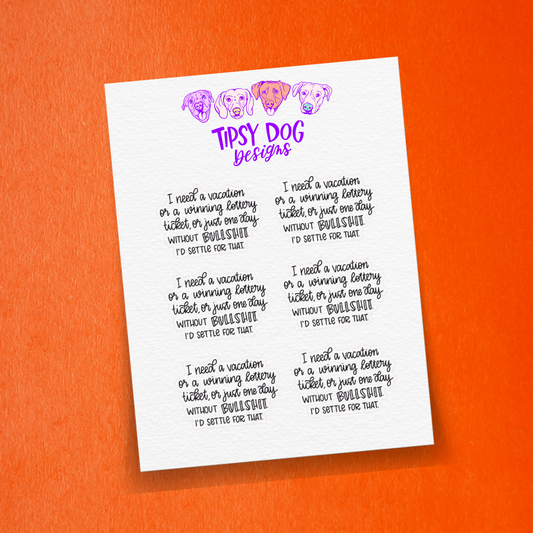 TIPSY DOG
Designs
I need a vacation
or a winning lottery
ticket, or just one day
WITHOUT BULLSHIT
I'D SETTLE FOR THAT.
I need a vacation
or a winning lottery
ticket, or just one day
WITHOUT BULLSHIT
I'D SETTLE FOR THAT.
I need a vacation
or a winning lottery
ticket, or just one day
WITHOUT BULLSHIT
I'D SETTLE FOR THAT.
I need a vacation
or a winning lottery
ticket, or just one day
WITHOUT BULLSHIT
I'D SETTLE FOR THAT.
I need a vacation
or a winning lottery
ticket, or just one day
WITHOUT BULLSHIT
I'D SETTLE FOR THAT.
I need a vacation
or a winning lottery
ticket, or just one day
WITHOUT BULLSHIT
I'D SETTLE FOR THAT.